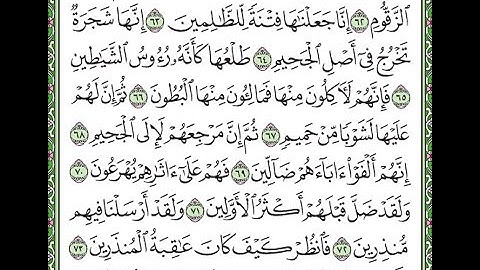 ٱلزَّقُّومِ ٦٢ إِنَّا جَعَلْنَٰهَا فِتْنَةً لِّلظَّٰلِمِينَ ٦٣ إِنَّهَا شَجَرَةٌ
تَخْرُجُ فِىٓ أَصْلِ ٱلْجَحِيمِ ٦٤ طَلْعُهَا كَأَنَّهُۥ رُءُوسُ ٱلشَّيَٰطِينِ
٦٥ فَإِنَّهُمْ لَءَاكِلُونَ مِنْهَا فَمَالِـُٔونَ مِنْهَا ٱلْبُطُونَ ٦٦ ثُمَّ إِنَّ لَهُمْ
عَلَيْهَا لَشَوْبًا مِّنْ حَمِيمٍ ٦٧ ثُمَّ إِنَّ مَرْجِعَهُمْ لَإِلَى ٱلْجَحِيمِ ٦٨
إِنَّهُمْ أَلْفَوْا۟ ءَابَآءَهُمْ ضَآلِّينَ ٦٩ فَهُمْ عَلَىٰٓ ءَاثَٰرِهِمْ يُهْرَعُونَ ٧٠
وَلَقَدْ ضَلَّ قَبْلَهُمْ أَكْثَرُ ٱلْأَوَّلِينَ ٧١ وَلَقَدْ أَرْسَلْنَا فِيهِم
مُّنذِرِينَ ٧٢ فَٱنظُرْ كَيْفَ كَانَ عَٰقِبَةُ ٱلْمُنذَرِينَ ٧٣